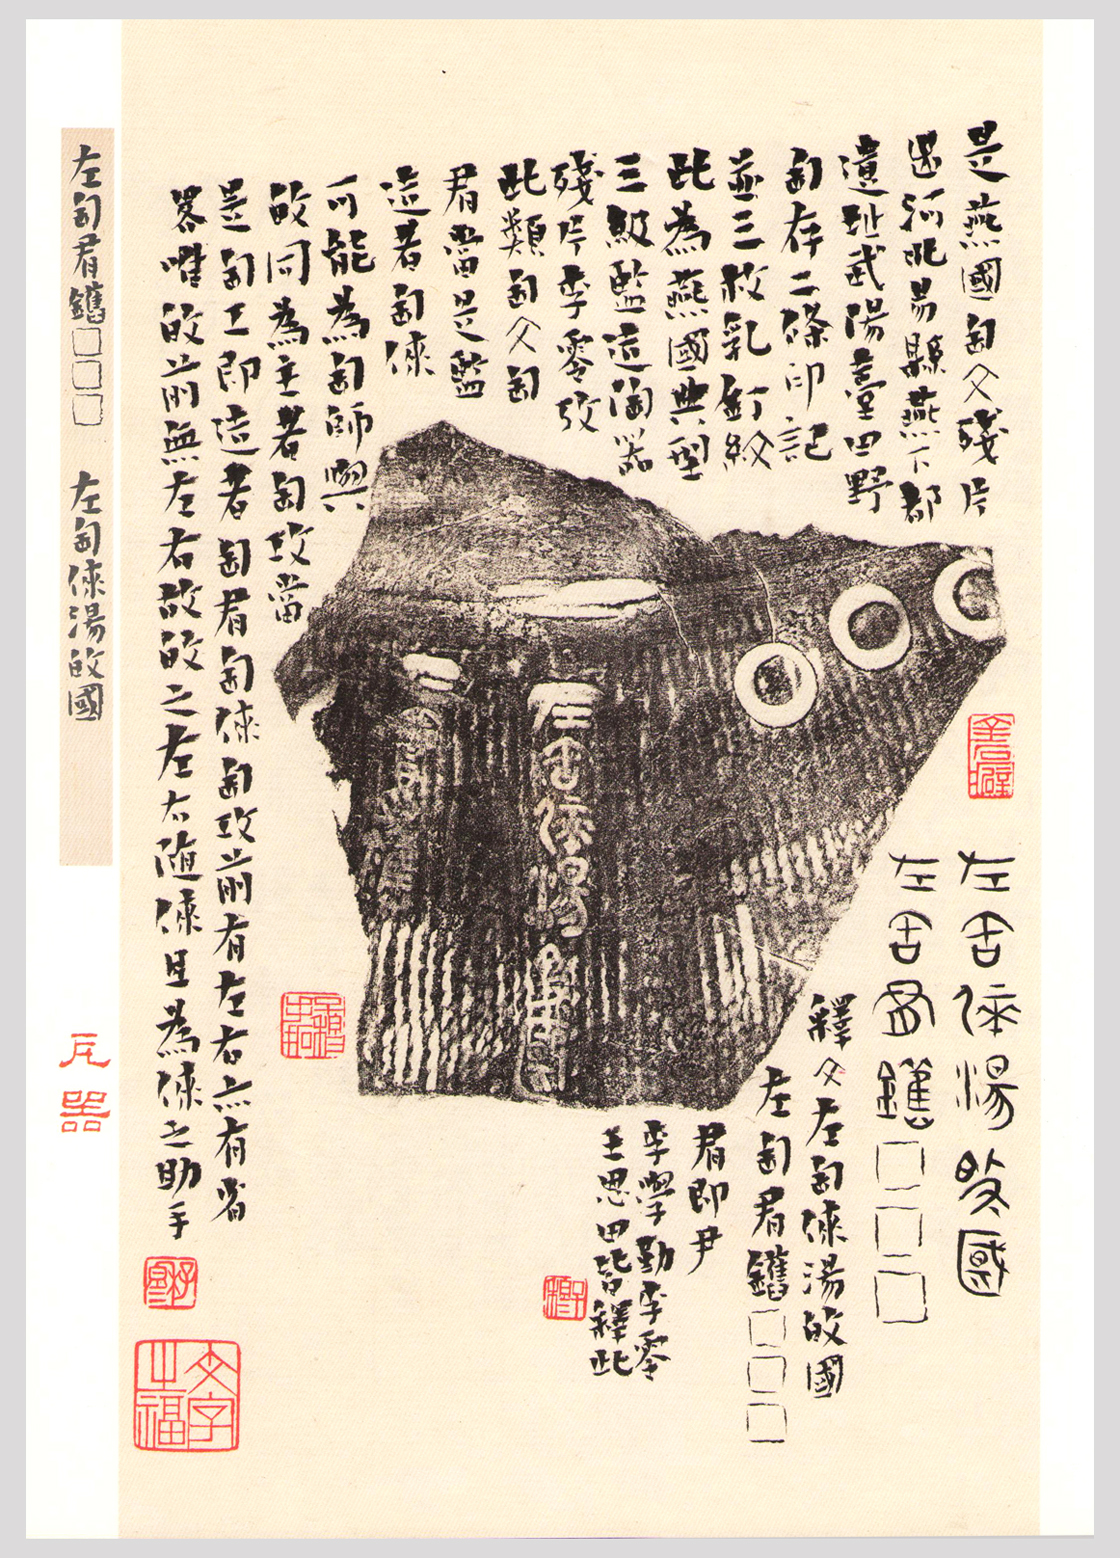 是燕國匋文殘片
出河北易縣燕下都
遺址武陽臺田野
匋存二條印記
並三枚乳釘紋
此為燕國典型
三級監造陶器
殘片李零攷
此類匋文匋
君當是監
造者匋倈
可能為匋師㒷
攺同為主者匋攻當
是匋工即造者匋君匋倈匋攻前有左右亦有省
畧唯攺前無左右故攺之左右随倈且為倈之助手
左匋倈湯攺國
左匋君鑴□□□
釋文左匋倈湯攺國
左匋君鑴□□□
君即尹
李學勤李零
王恩田皆釋此
文字之福
左匋君鑴□□□ 左匋倈湯攺國
瓦器